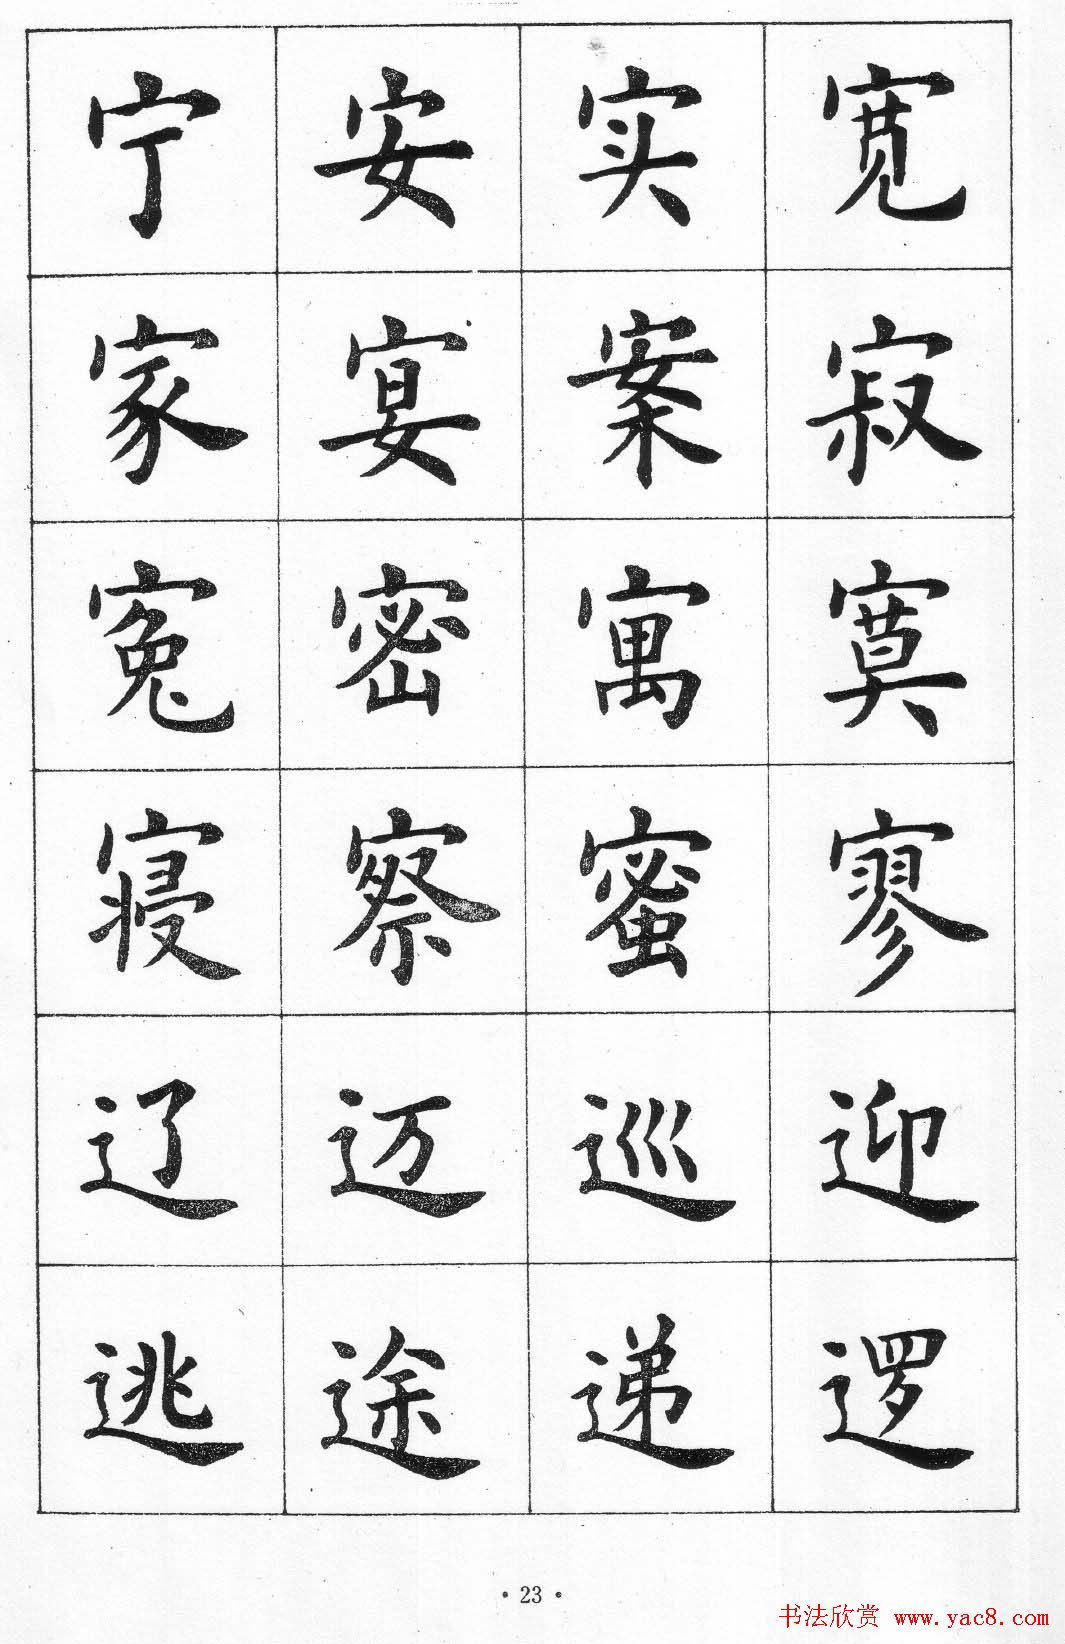 宁安实宽
家宴案寂
寃密寓寞
寝察蜜寥
辽迈巡迎
逃途递逻
·23·
书法欣赏 www.yac8.com